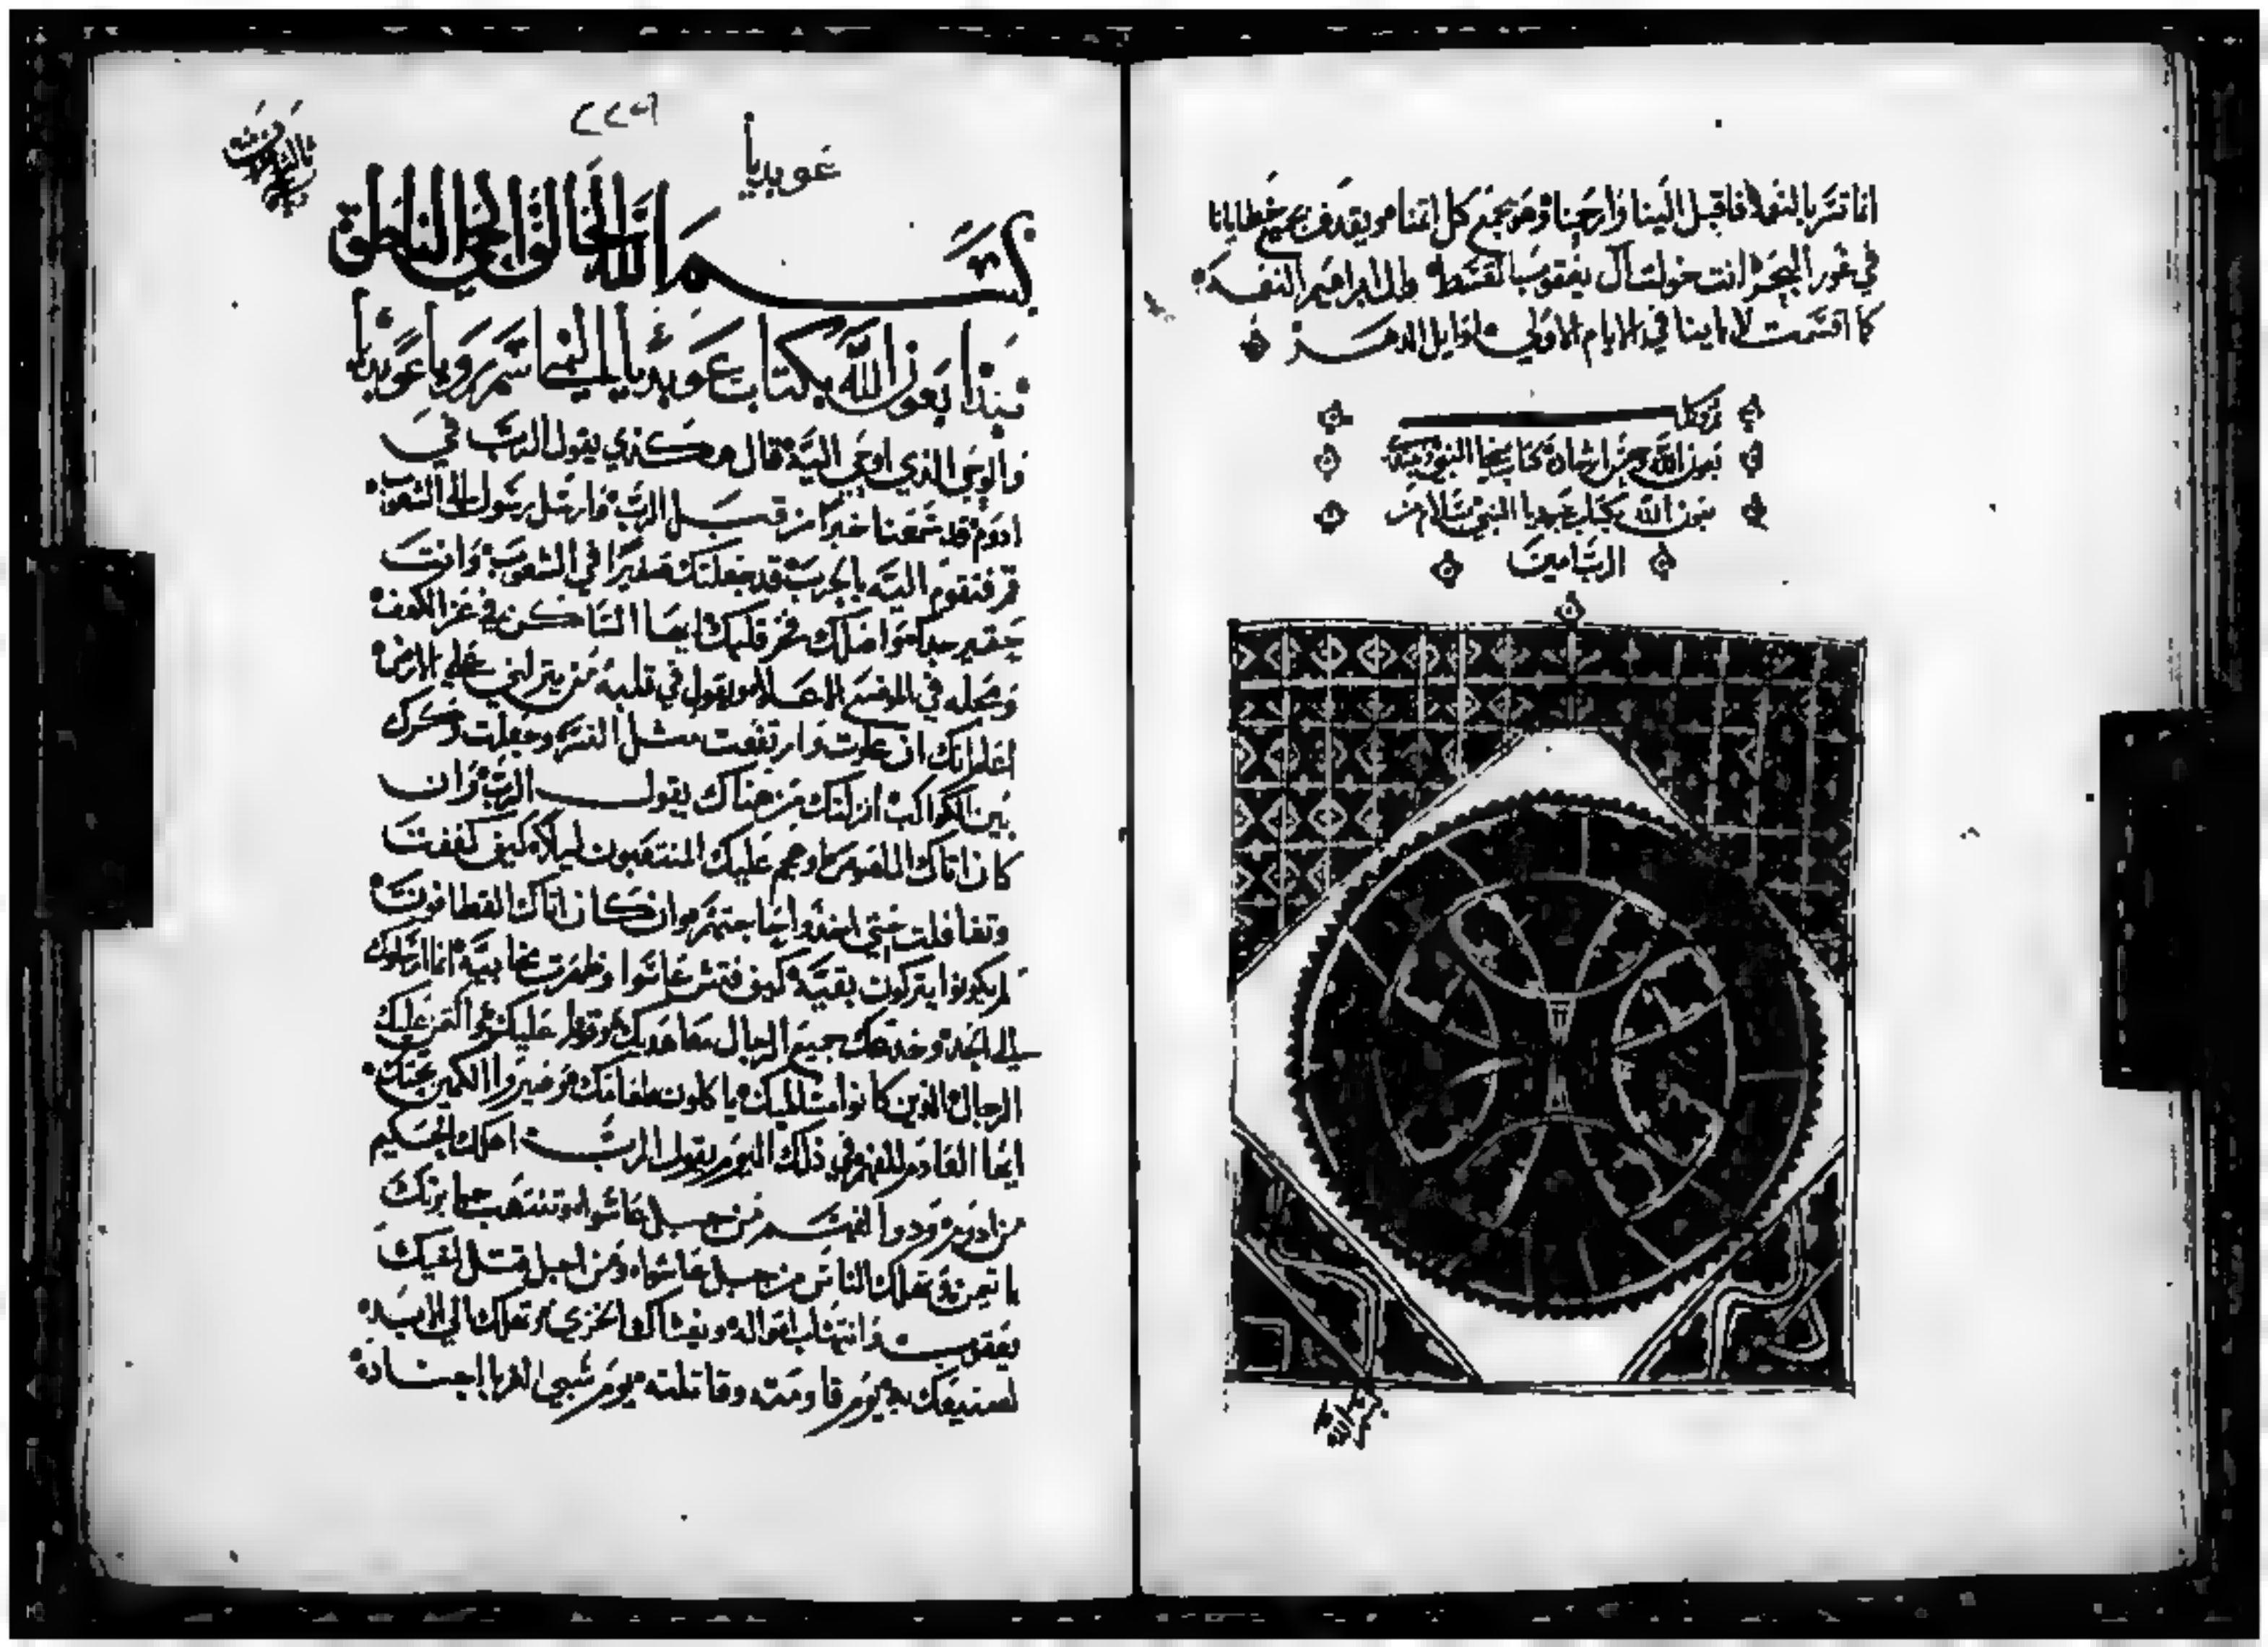 انا نتم بالتقولا فاقبل الينا وارحمنا وهو يجمع كل اثمنا ويقذف جميع خطايانا
في غور البحر انت خولت آل يعقوب القسط وال ابراهيم النعمه
كما اقسمت لاباينا في الايام الاولي اوايل الدهر
تم وكمل
بعون الله وحسن ارشاده كتاب ميخا النبي
بعون الله كتاب عوبديا النبي بسلام من
الرب امين
عوبديا
بسم الله الخالق الحي الناطق
نبتدا بعون الله بكتاب عوبديا النبي
والوحي الذي اوحي اليه قال هكذي يقول الرب في
ادوم قد سمعنا خبرا من قبل الرب وارسل رسول الى الشعوب
قم فنقوم اليه بالحرب قد جعلتك صغيرا في الشعوب وانت
حقير جدا فخر قلبك ايها الساكن في الكهف
ومحله في الموضع الاعلا ويقول في قلبه من ينزلني علي الارض
اعلم انك ان علوت وارتفعت مثل النسر وجعلت وكرك
بين الكواكب انزلتك من هناك يقول الرب وان
كان اتاك اللصوص او هجم عليك المنتهبون ليلا كيف كففت
وتغافلت حتي اخذوا حاجتهم وان كان اتاك القطافون
لم يكونوا يتركون بقية كيف فتش عاسوا وظهرت مخابيه
الي الحد وخدعك جميع الرجال معاهديك
الرجال الذين كانوا ياكلون طعامك وصيروا الكمين تحتك
في ذلك اليوم يقول الرب اهلك الحكيم
من ادوم وذوا الفهم من جبل عاسوا وتنتهب جبابرتك
يا تيمن وتهلك الناس من جبل عاسوا ومن اجل قتل اخيك
يعقوب وانتهاب امواله ويغشاك الخزي وتهلك الي الابد
يوم قاومته وقاتلته يوم سبي الغربا اجناده